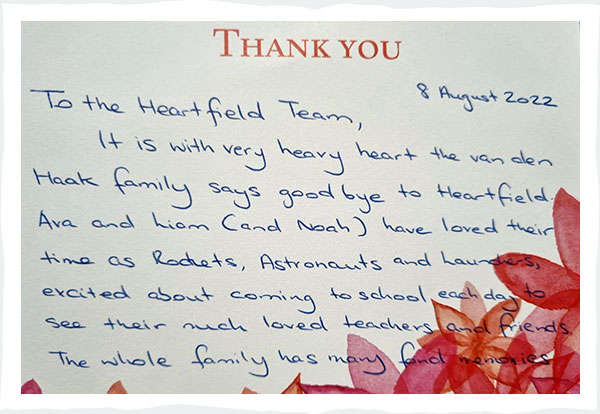 THANK YOU
8 August 2022
To the Heartfield Team,
It is with very heavy heart the van den
Haak family says goodbye to Heartfield.
Ava and Liam (and Noah) have loved their
time as Rockets, Astronauts and Launchers,
excited about coming to school each day to
see their much loved teachers and friends.
The whole family has many fond memories